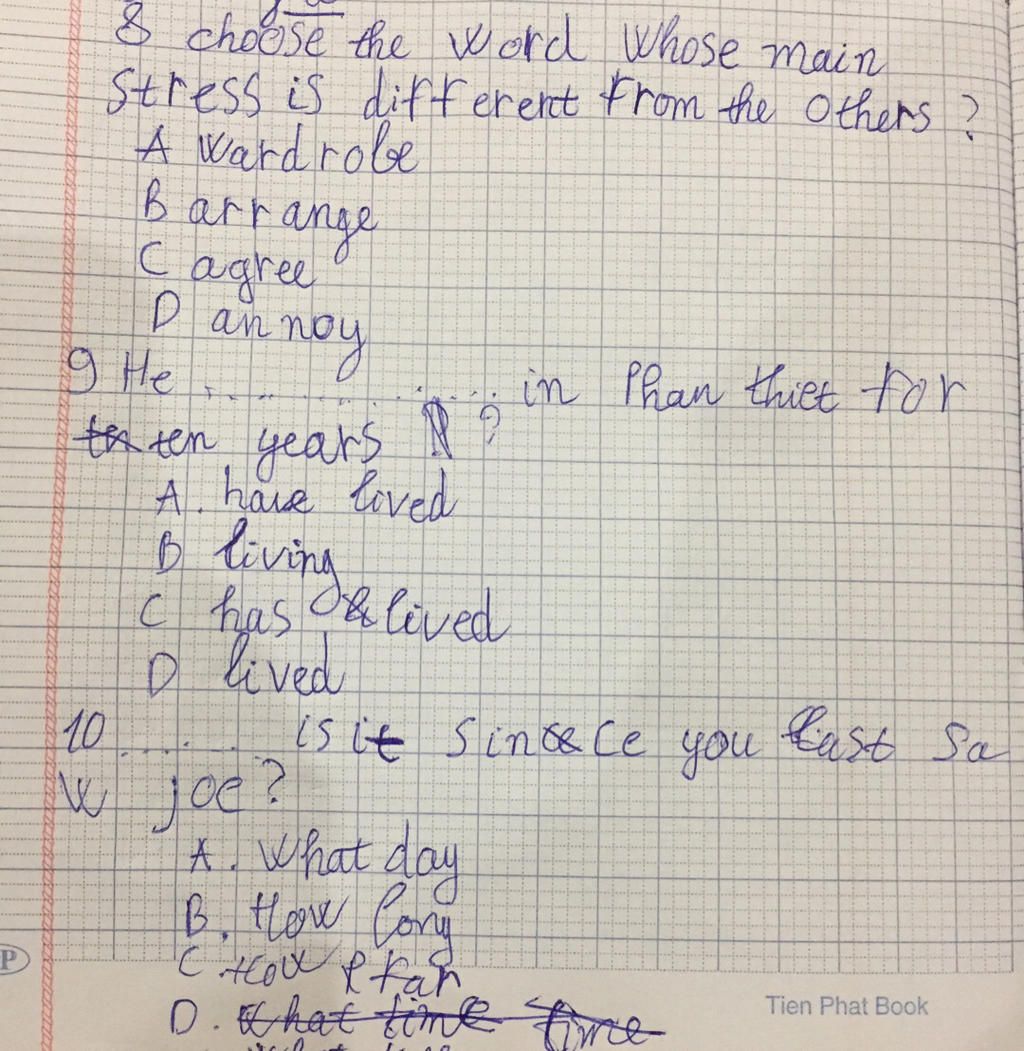 8 choose the word whose main
stress is different from the others ?
A wardrobe
B arrange
C agree
D annoy
9 He .............. in Phan thiet for
ten years ?
A. have lived
B living
C has lived
D lived
10 ....... is it since you last sa
w joe?
A. What day
B. How long
C How far
D. what time time
P
Tien Phat Book